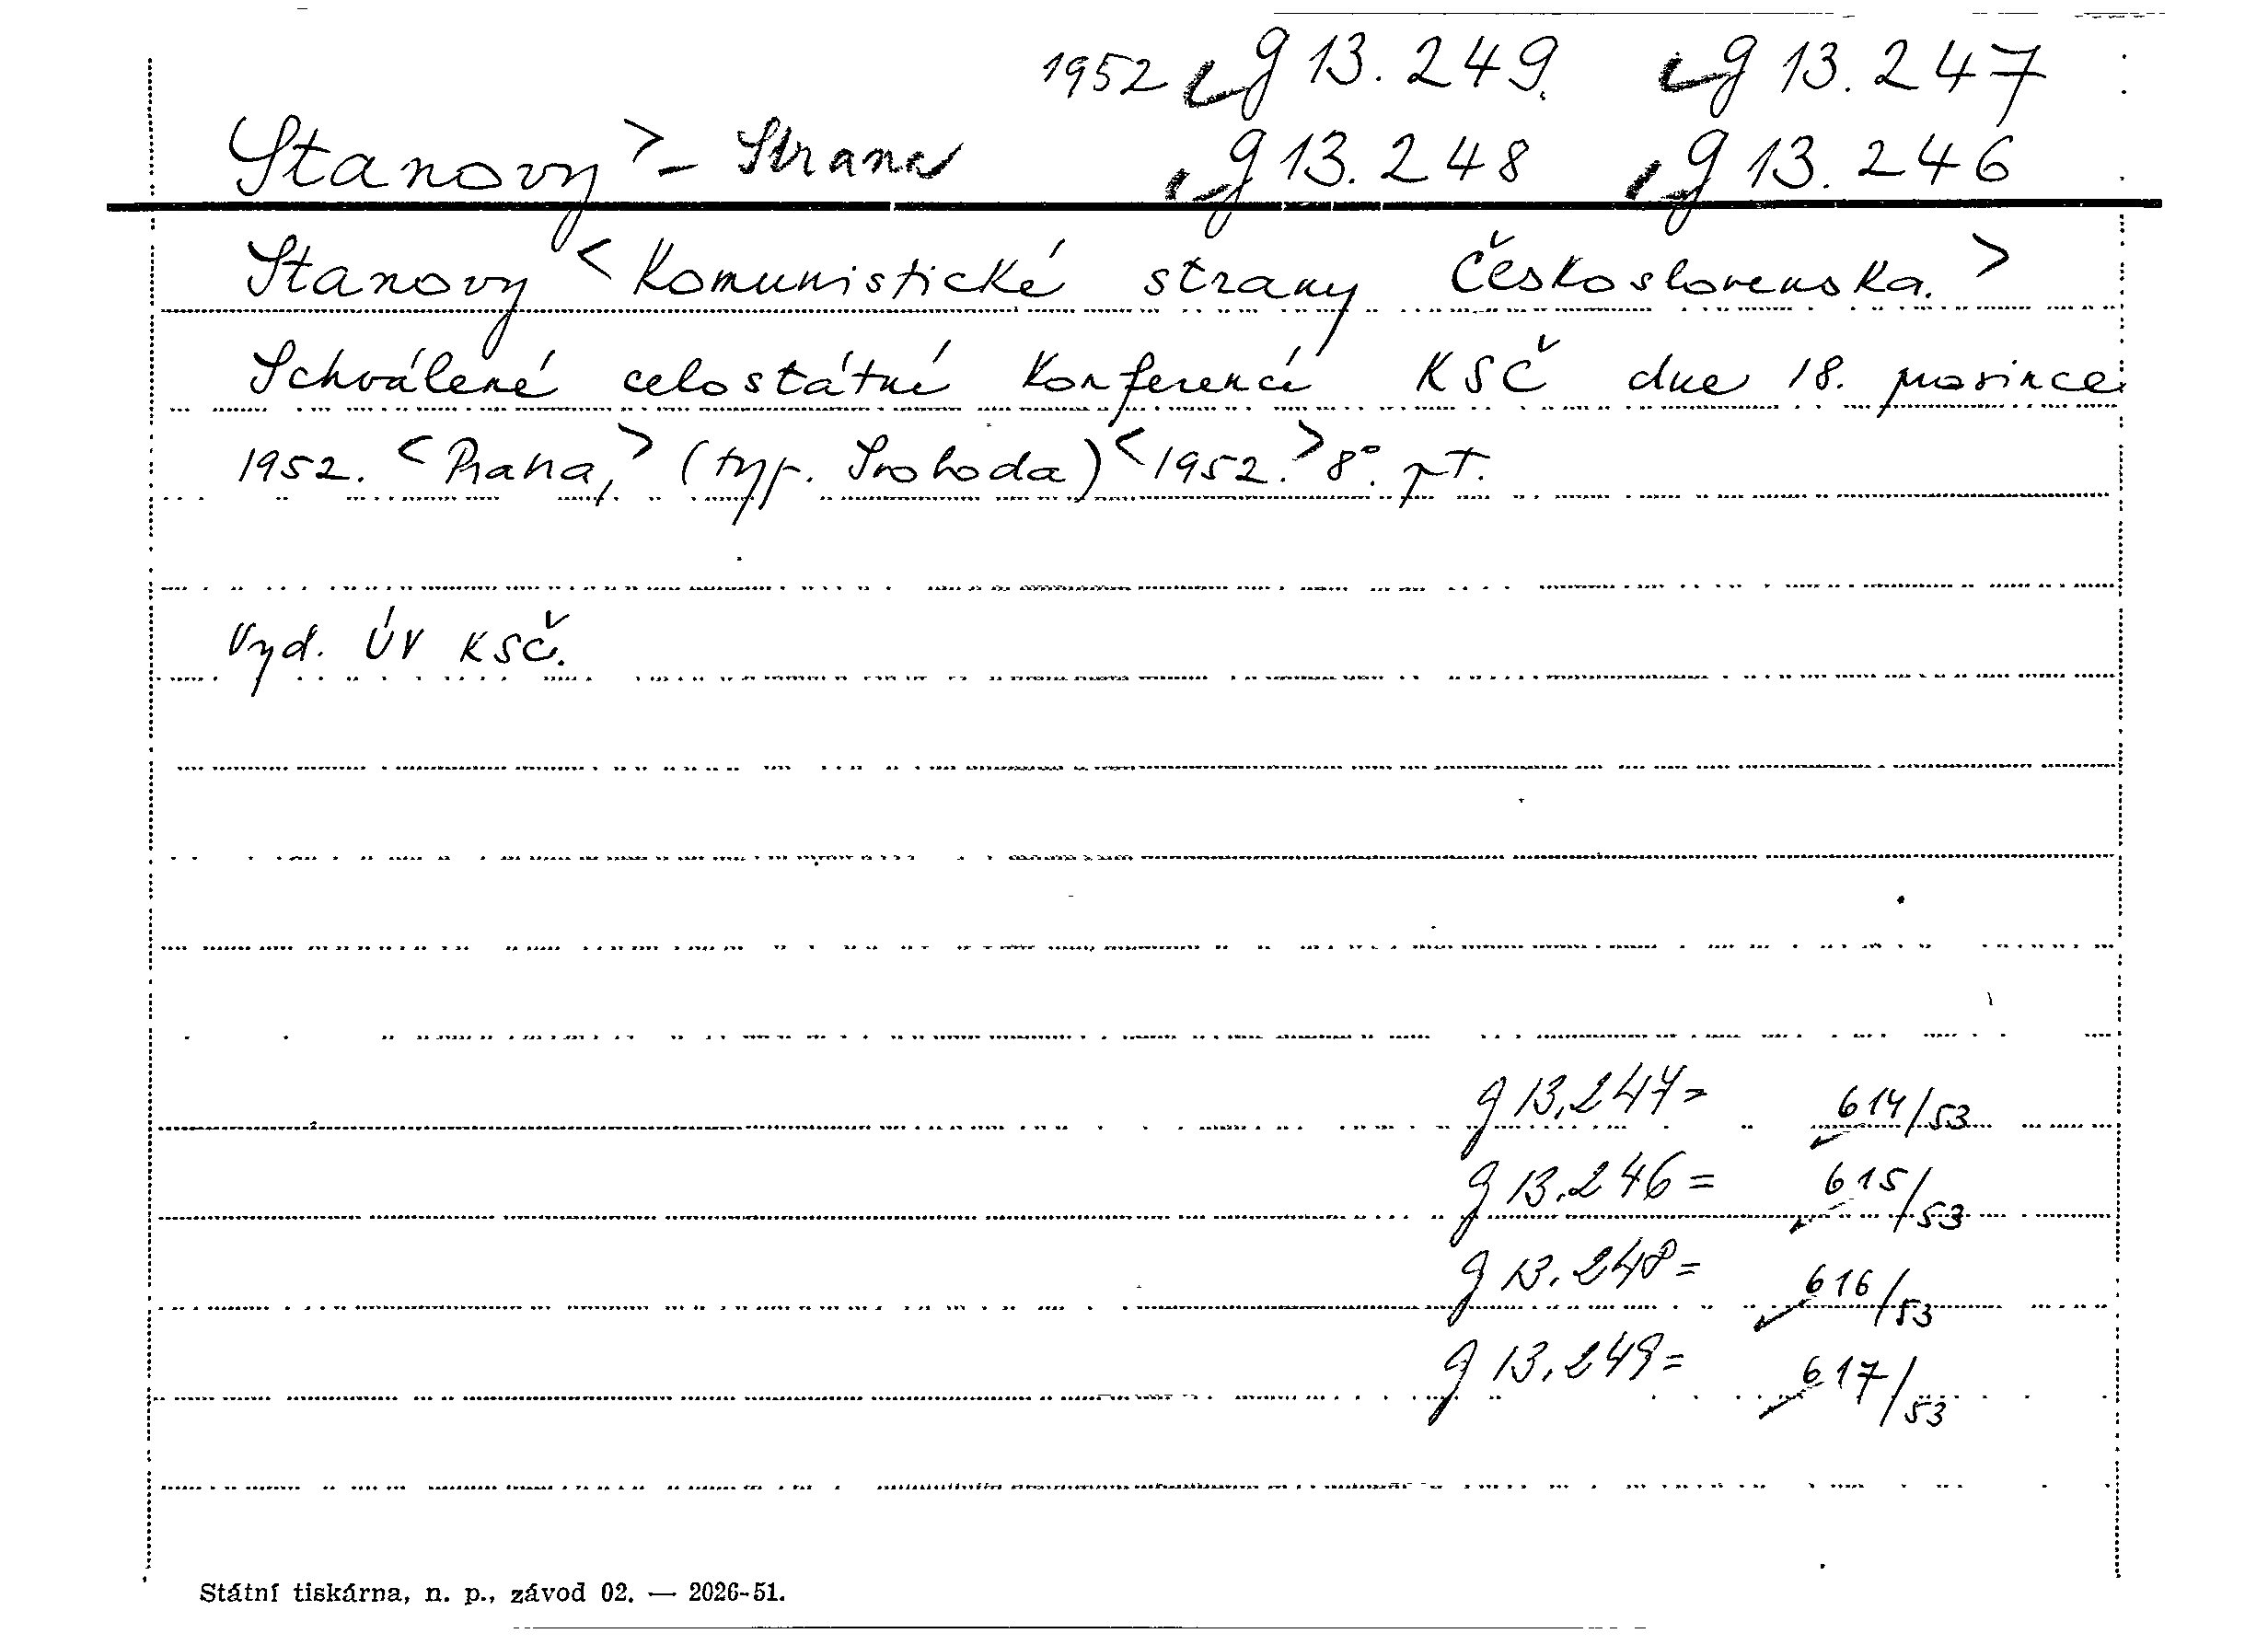 1952 g 13.249. g 13.247
Stanovy > - Strana g 13.248 g 13.246
Stanovy < Komunistické strany Československa. >
Schválené celostátní konferencí KSČ dne 18. prosince
1952. < Praha, > (typ. Svoboda) < 1952. > 8°. pt.
Vyd. ÚV KSČ.
g 13.247 = 614/53
g 13.246 = 615/53
g 13.248 = 616/53
g 13.249 = 617/53
Státní tiskárna, n. p., závod 02. — 2026-51.